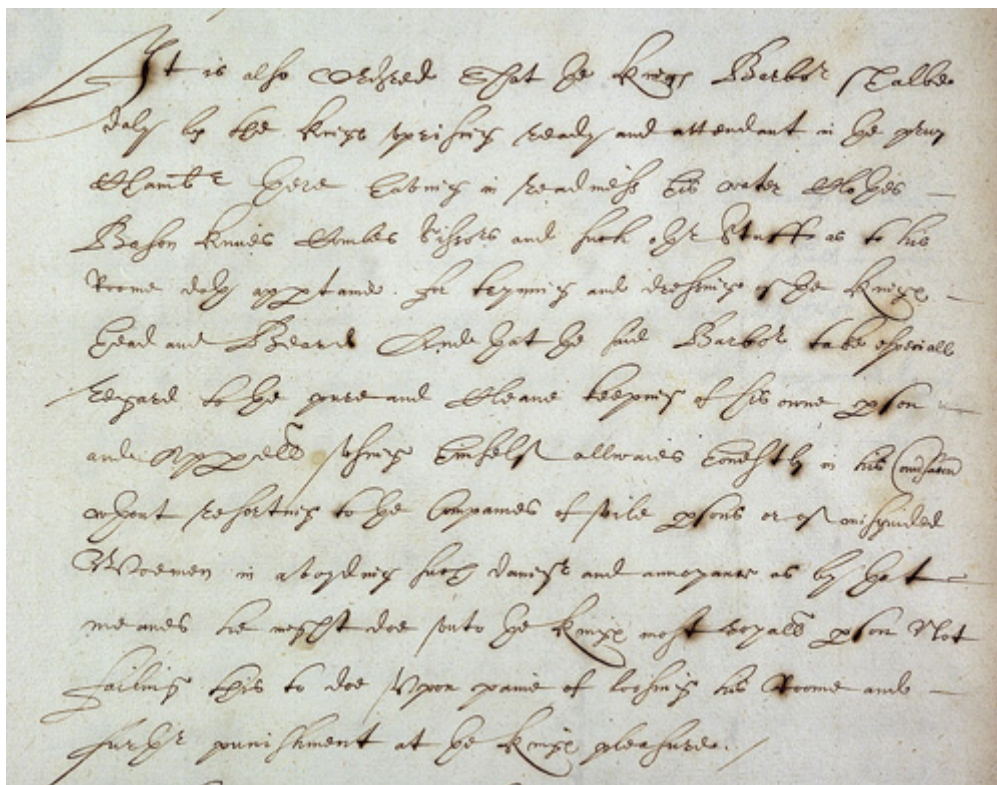 It is also Ordred That ye kings Barbor shalbe
daly by the kings uprising ready and attendant in ye privy
Chambr there having in readiness his water Clothes
Bason knives Combes Sissors and such othr Stuff as to his
Roome doth apptaine for trymming and dressing of ye kings
head and Beard And that ye said Barbor take especiall
regard to ye pure and Cleane keeping of his owne pson
and Appell using himself allwaies honestly in his Conversacon
wthout resorting to ye Companies of vile psons or of misguided
Woemen in avoyding such daunger and annoyance as by that
meanes he might doe unto ye kings most royall pson Not
failing this to doe Upon paine of loosing his Roome and
furthr punishment at ye kings pleasure.